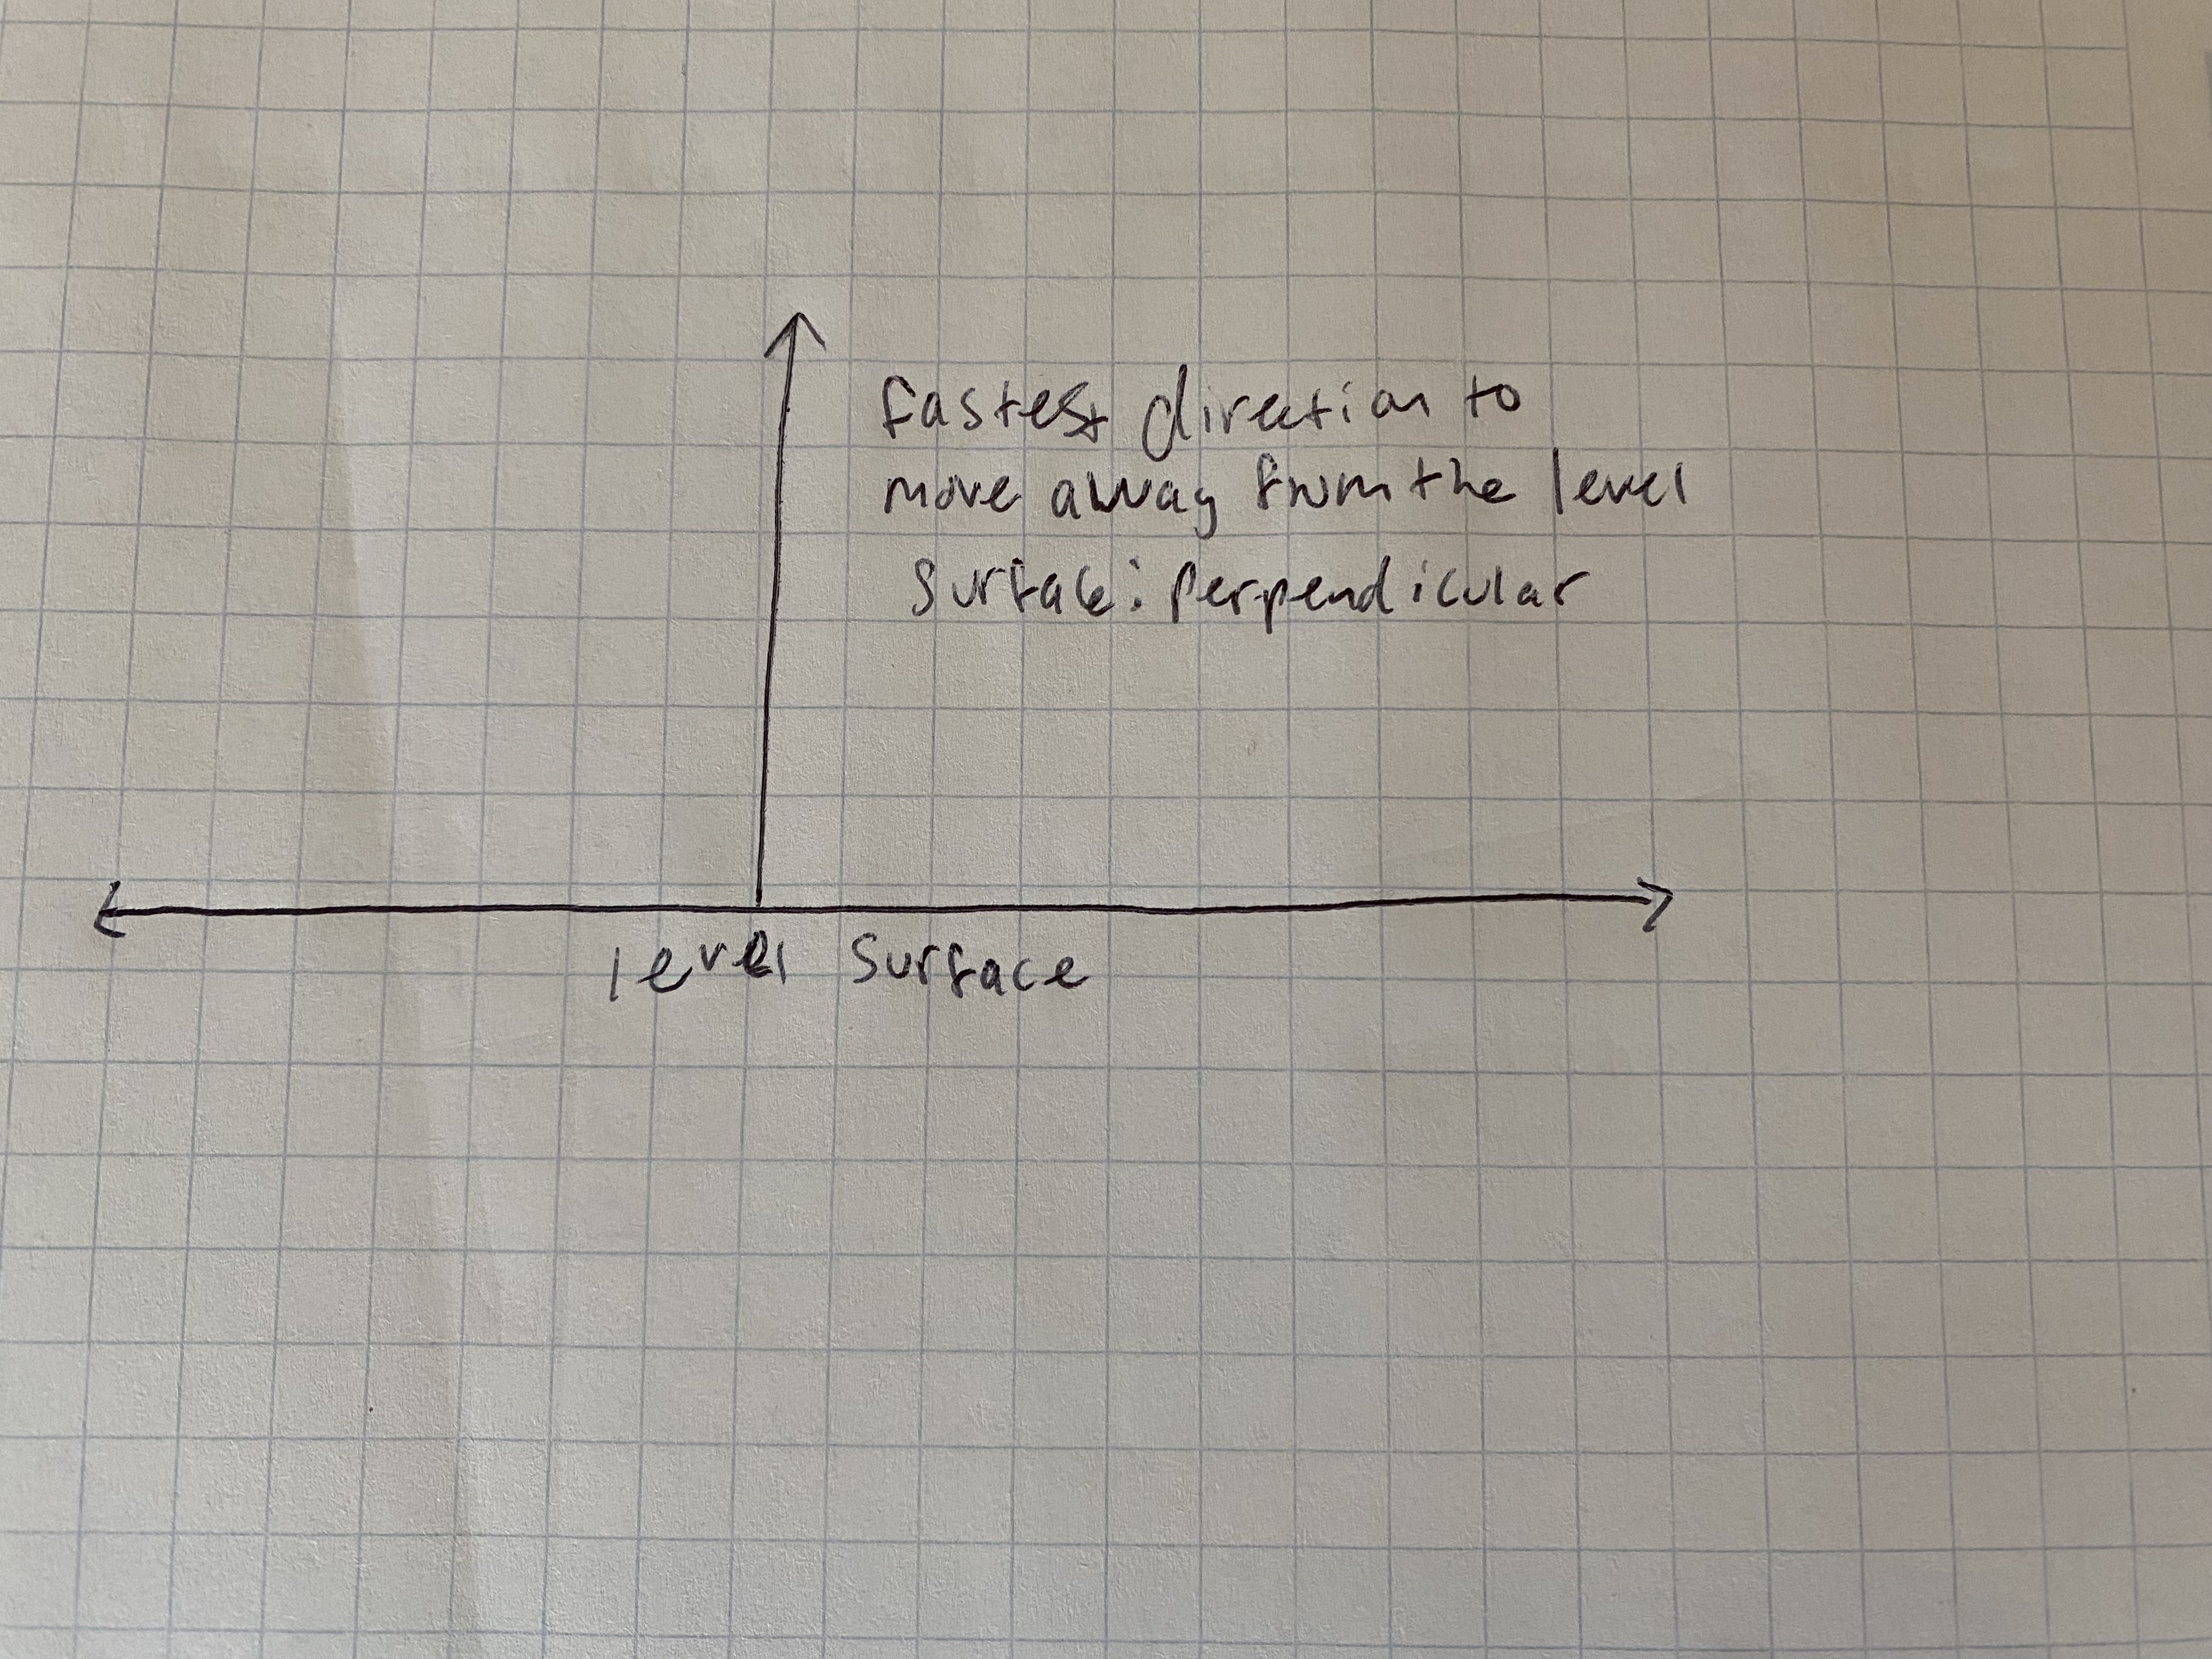 fastest direction to
move away from the level
surface: perpendicular
level surface